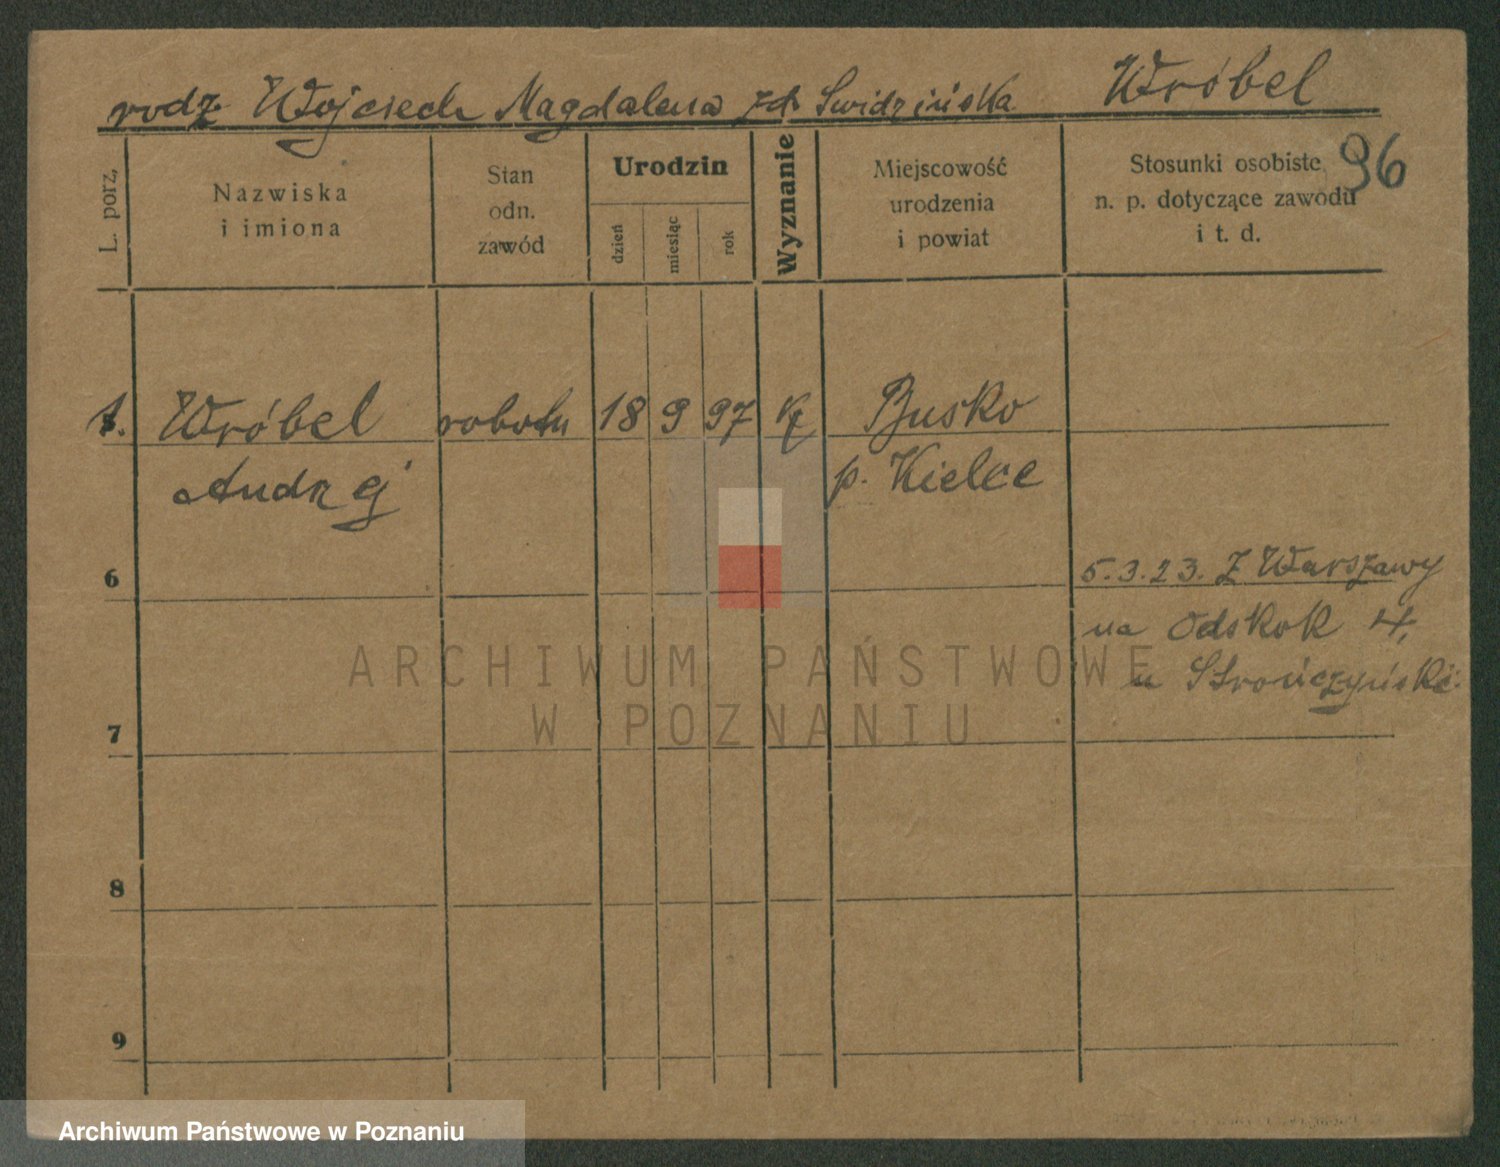 rodz Wojciech Magdalena zd Swidzińska Wróbel
96
L. porz.
Nazwiska
i imiona
Stan
odn.
zawód
Urodzin
dzień
miesiąc
rok
Wyznanie
Miejscowość
urodzenia
i powiat
Stosunki osobiste,
n. p. dotyczące zawodu
i t. d.
1. Wróbel robotn 18 9 97 Busko
Andrzej p. Kielce
6 5.3.23. Z Warszawy
na Odskok 4,
u Strończyński
7
8
9
ARCHIWUM PAŃSTWOWE
W POZNANIU
Archiwum Państwowe w Poznaniu